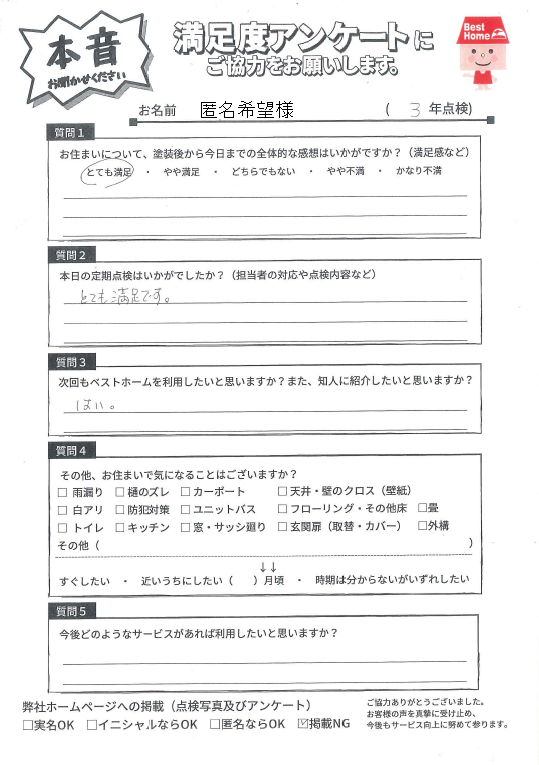 本音
お聞かせください
満足度アンケートに
ご協力をお願いします。
Best
Home
お名前 匿名希望様 ( 3 年点検)
質問1
お住まいについて、塗装後から今日までの全体的な感想はいかがですか？（満足感など）
とても満足 ・ やや満足 ・ どちらでもない ・ やや不満 ・ かなり不満
質問2
本日の定期点検はいかがでしたか？（担当者の対応や点検内容など）
とても満足です。
質問3
次回もベストホームを利用したいと思いますか？また、知人に紹介したいと思いますか？
はい。
質問4
その他、お住まいで気になることはございますか？
□ 雨漏り □ 樋のズレ □ カーポート □ 天井・壁のクロス（壁紙）
□ 白アリ □ 防犯対策 □ ユニットバス □ フローリング・その他床 □畳
□ トイレ □ キッチン □ 窓・サッシ廻り □ 玄関扉（取替・カバー） □外構
その他（ ）
↓↓
すぐしたい ・ 近いうちにしたい（ ）月頃 ・ 時期は分からないがいずれしたい
質問5
今後どのようなサービスがあれば利用したいと思いますか？
弊社ホームページへの掲載（点検写真及びアンケート）
□実名OK □イニシャルならOK □匿名ならOK ☑掲載NG
ご協力ありがとうございました。
お客様の声を真摯に受け止め、
今後もサービス向上に努めて参ります。